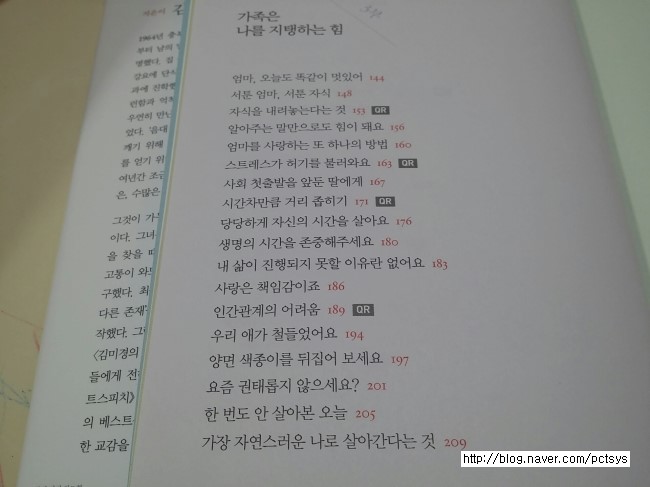 지은이
1964년
부터 남의
명했다. 집
강요에
과에 진학했
련함과
우연히 만난
었다.
깨기 위해
를 얻기 위
여년간
은, 수많은
그것이
이다. 그녀
을 찾을 때
고통이
구했다. 최
다른 존재
작했다.
〈김미경의
들에게
트스피치》
의 베스트
한 교감을
가족은
나를 지탱하는 힘
엄마, 오늘도 똑같이 멋있어 144
서툰 엄마, 서툰 자식 148
자식을 내려놓는다는 것 153 QR
알아주는 말만으로도 힘이 돼요 156
엄마를 사랑하는 또 하나의 방법 160
스트레스가 허기를 불러와요 163 QR
사회 첫출발을 앞둔 딸에게 167
시간차만큼 거리 좁히기 171 QR
당당하게 자신의 시간을 살아요 176
생명의 시간을 존중해주세요 180
내 삶이 진행되지 못할 이유란 없어요 183
사랑은 책임감이죠 186
인간관계의 어려움 189 QR
우리 애가 철들었어요 194
양면 색종이를 뒤집어 보세요 197
요즘 권태롭지 않으세요? 201
한 번도 안 살아본 오늘 205
가장 자연스러운 나로 살아간다는 것 209
http://blog.naver.com/pctsys